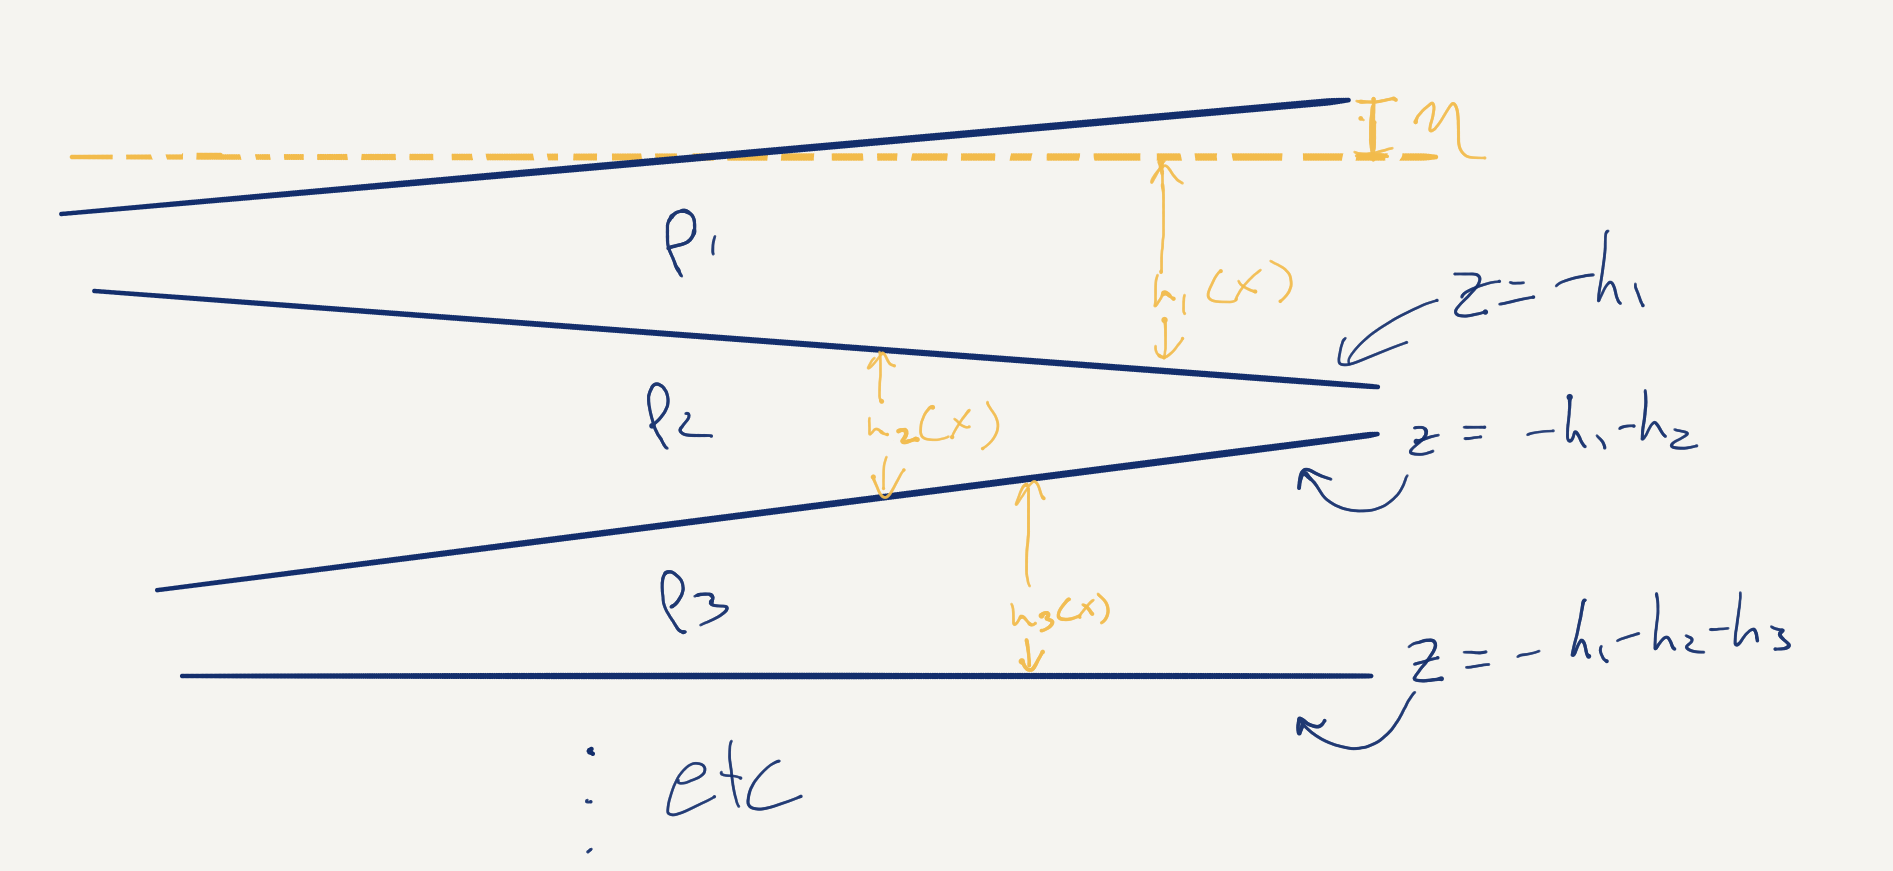 η
ρ₁
h₁(x)
z = -h₁
ρ₂
h₂(x)
z = -h₁-h₂
ρ₃
h₃(x)
z = -h₁-h₂-h₃
⋮ etc